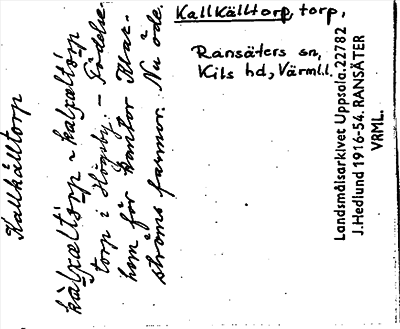 Kallkälltorp, torp,
Ransäters sn,
Kils hd, Värml.l.
Landsmålsarkivet Uppsala. 22782
J. Hedlund 1916-54. RANSÄTER
VRML.
Kallkälltorp
torp i Högsby. – Födelse-
hem för kantor
ströms farmor. Nu öde.